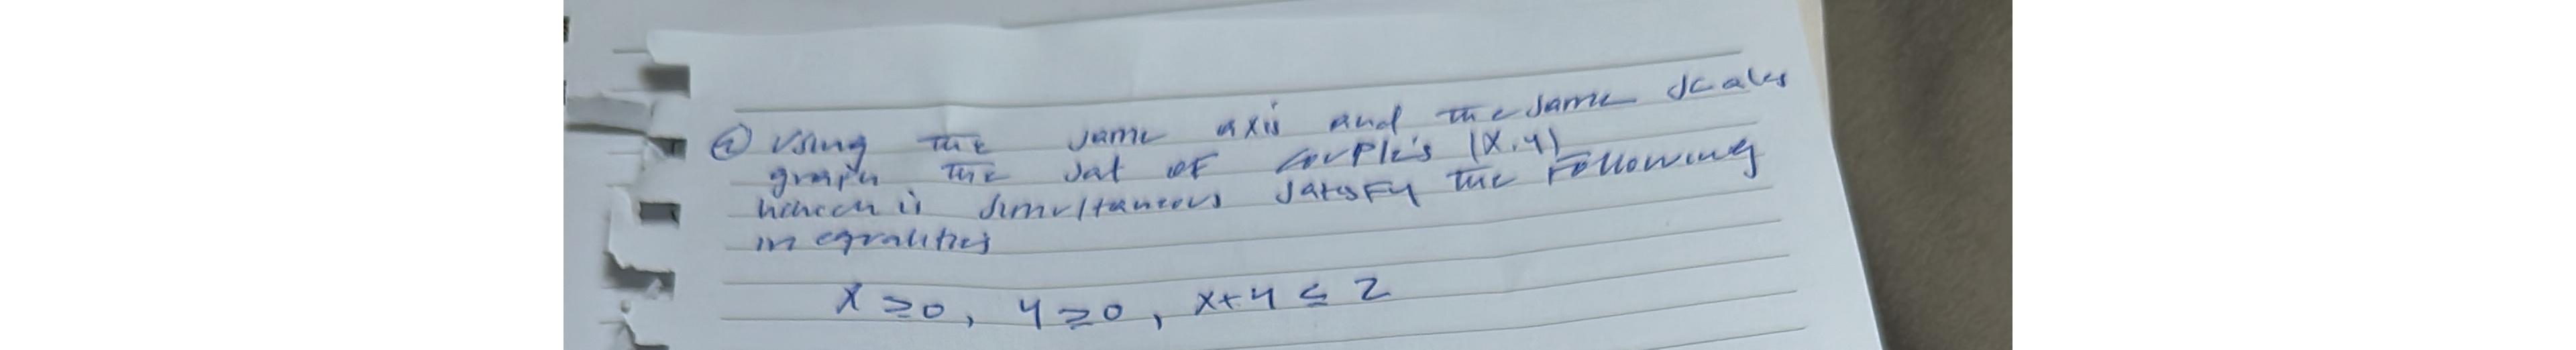 ⓐ Using the same axis and the same scales
graph the sat of couple's (x, y)
which is simultaneous satisfy the Following
in equalities
x ≥ 0, y ≥ 0, x + y ≤ 2